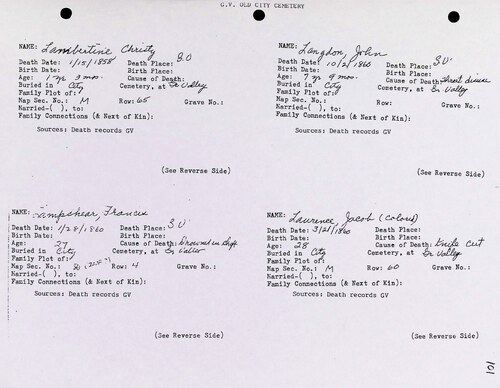 G.V. OLD CITY CEMETERY
NAME: Lambertine Christy
Death Date: 1/15/1858 Death Place: G.V.
Birth Date: Birth Place:
Age: 1 yr 3 mos. Cause of Death:
Buried in City Cemetery, at Gr Valley
Family Plot of:
Map Sec. No.: M Row: 65 Grave No.:
Married-( ), to:
Family Connections (& Next of Kin):
Sources: Death records GV
(See Reverse Side)
NAME: Langdon, John
Death Date: 10/21/1860 Death Place: G.V.
Birth Date: Birth Place:
Age: 7 yr 9 mos. Cause of Death: throat disease
Buried in City Cemetery, at Gr Valley
Family Plot of:
Map Sec. No.: M Row: Grave No.:
Married-( ), to:
Family Connections (& Next of Kin):
Sources: Death records GV
(See Reverse Side)
NAME: Lampshear, Francis
Death Date: 1/28/1860 Death Place: G.V.
Birth Date: Birth Place:
Age: 27 Cause of Death: Drowned in shaft
Buried in City Cemetery, at Gr Valley
Family Plot of:
Map Sec. No.: Row: 4 Grave No.:
Married-( ), to:
Family Connections (& Next of Kin):
Sources: Death records GV
(See Reverse Side)
NAME: Laurence, Jacob (Colored)
Death Date: 3/21/1860 Death Place: G.V.
Birth Date: Birth Place:
Age: 28 Cause of Death: Knife Cut
Buried in City Cemetery, at Gr Valley
Family Plot of:
Map Sec. No.: M Row: 60 Grave No.:
Married-( ), to:
Family Connections (& Next of Kin):
Sources: Death records GV
(See Reverse Side)
101